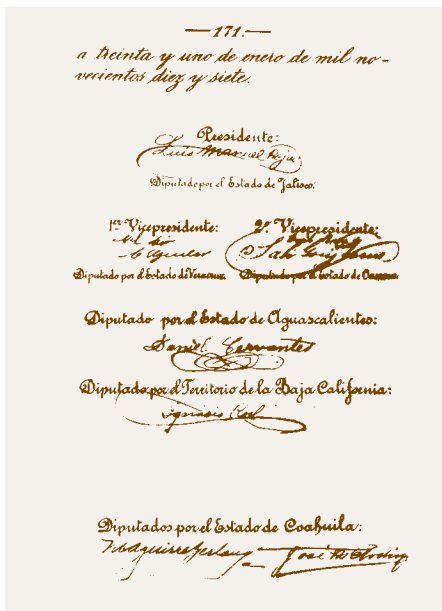 —171.—
a treinta y uno de enero de mil no-
vecientos diez y siete.
Presidente:
Luis Manuel Rojas
Diputado por el Estado de Jalisco.
1er Vicepresidente: 2º Vicepresidente:
C Aguilar Salv Gonz Torres
Diputado por el Estado de Veracruz. Diputado por el Estado de Oaxaca.
Diputado por el Estado de Aguascalientes:
Daniel Cervantes
Diputado por el Territorio de la Baja California:
Ignacio Roel
Diputados por el Estado de Coahuila:
M Aguirre Berlanga José